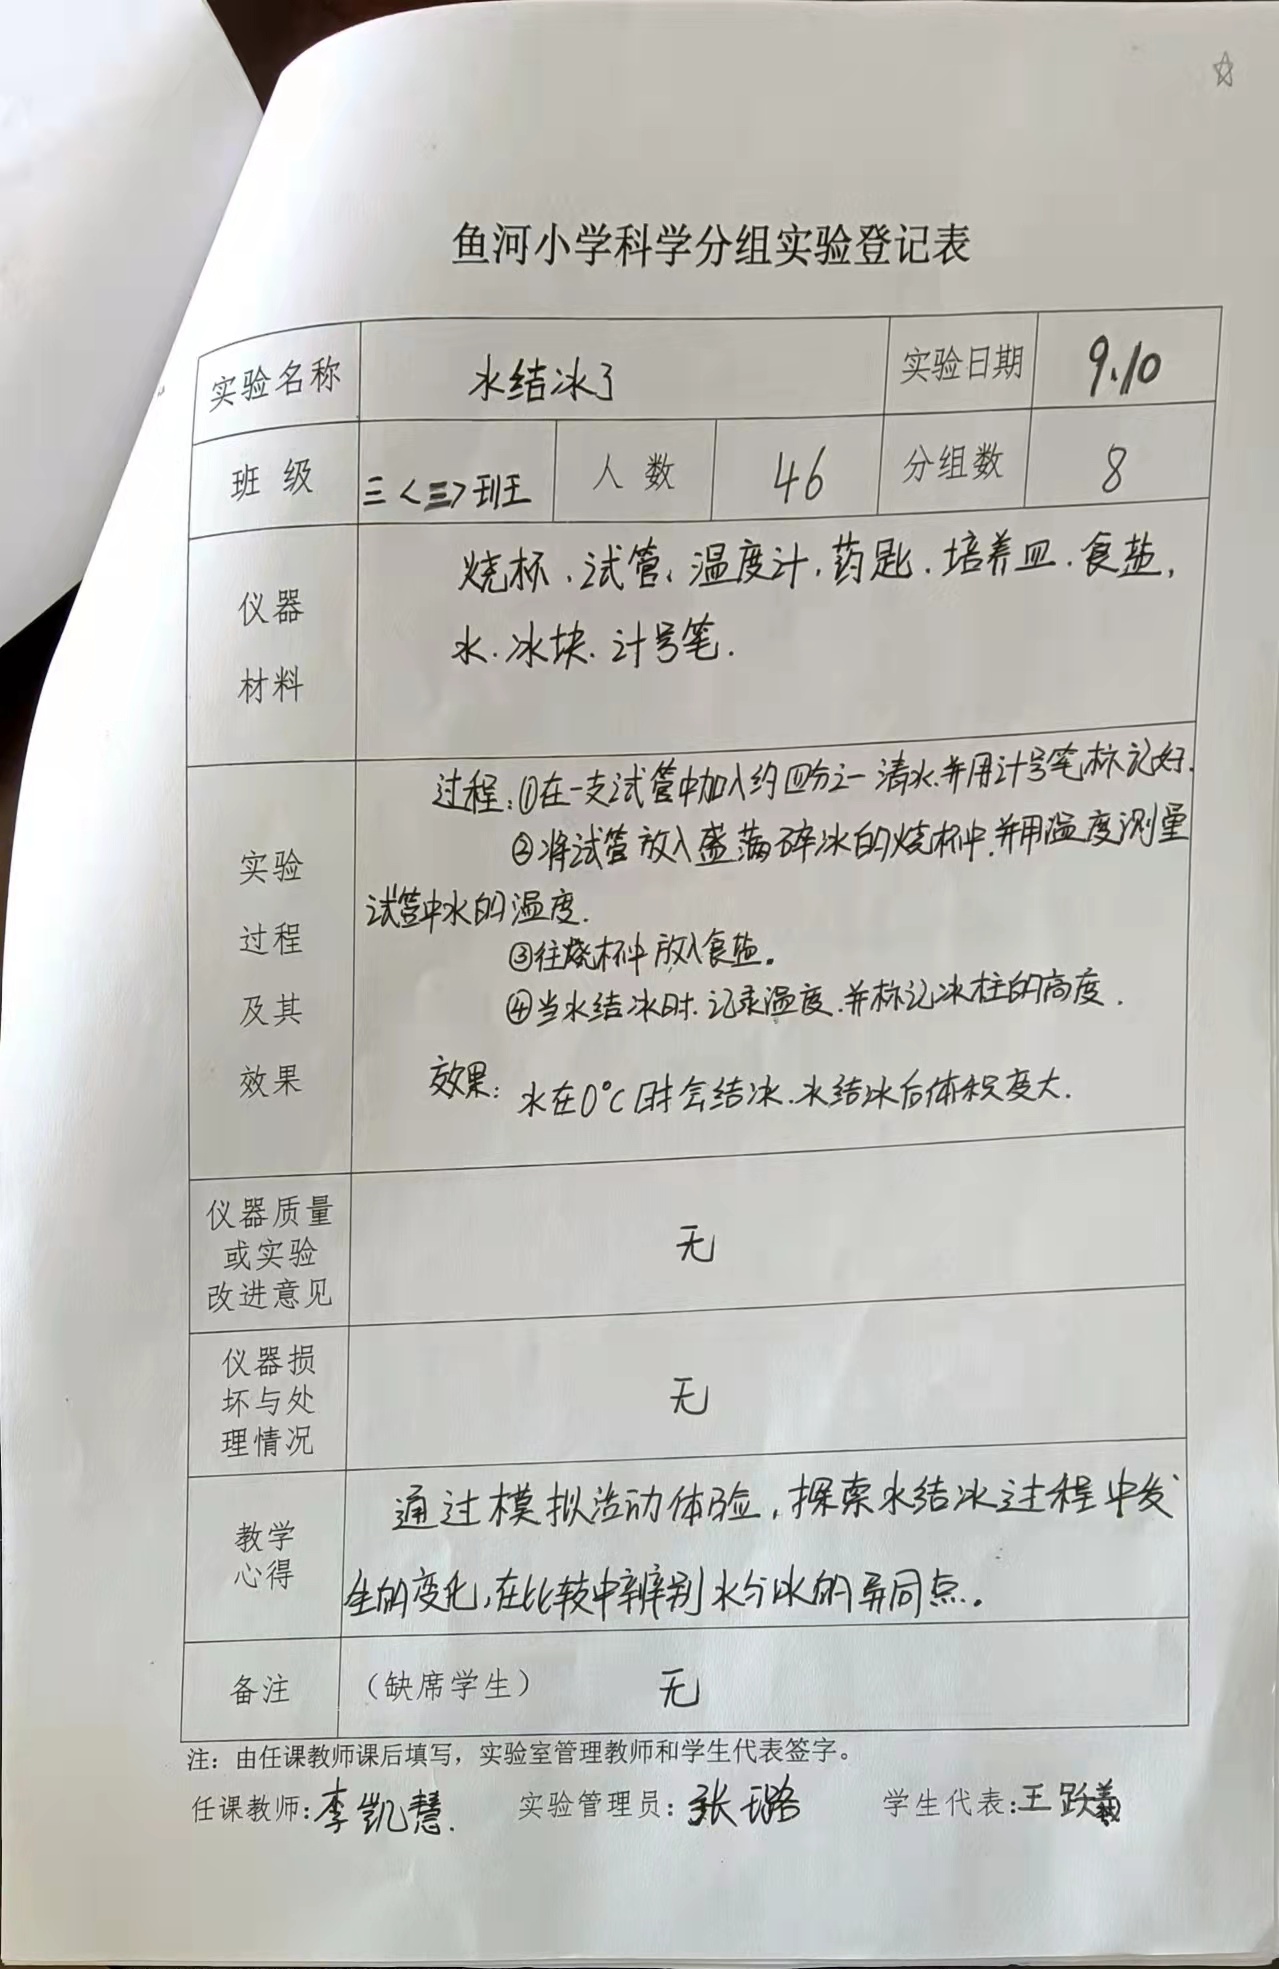 鱼河小学科学分组实验登记表
实验名称 水结冰了 实验日期 9.10
班级 三<三>班 人数 46 分组数 8
仪器
材料
烧杯、试管、温度计、药匙、培养皿、食盐,
水、冰块、计号笔.
实验
过程
及其
效果
过程:①在一支试管中加入约四分之一清水.并用计号笔标记好.
②将试管放入盛满碎冰的烧杯中.并用温度测量
试管中水的温度.
③往烧杯中放入食盐。
④当水结冰时.记录温度.并标记冰柱的高度.
效果:水在0°C时会结冰.水结冰后体积变大.
仪器质量
或实验
改进意见
无
仪器损
坏与处
理情况
无
教学
心得
通过模拟活动体验,探索水结冰过程中发
生的变化,在比较中辨别水与冰的异同点。
备注 (缺席学生) 无
注:由任课教师课后填写,实验室管理教师和学生代表签字。
任课教师:李凯慧. 实验管理员:张璐 学生代表:王跃